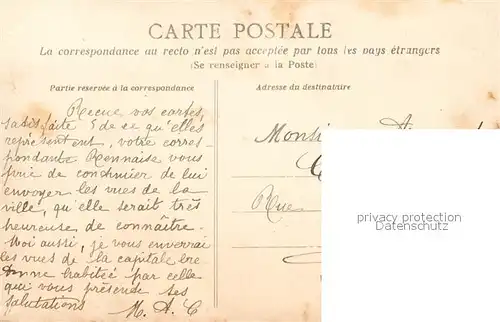 CARTE POSTALE
La correspondance au recto n'est pas acceptée par tous les pays étrangers
(Se renseigner à la Poste)
Partie réservée à la correspondance
Adresse du destinataire
Recue vos cartes,
satisfaite de ce qu'elles
représentent, votre corres-
pondante Rennaise vous
prie de continuer de lui
envoyer les vues de la
ville, qu'elle serait très
heureuse de connaître.
Moi aussi, je vous enverrai
les vues de la capitale bre
tonne habitée par celle
qui vous présense ses
salutations M. A. C
Monsi
Rue
privacy protection
Datenschutz